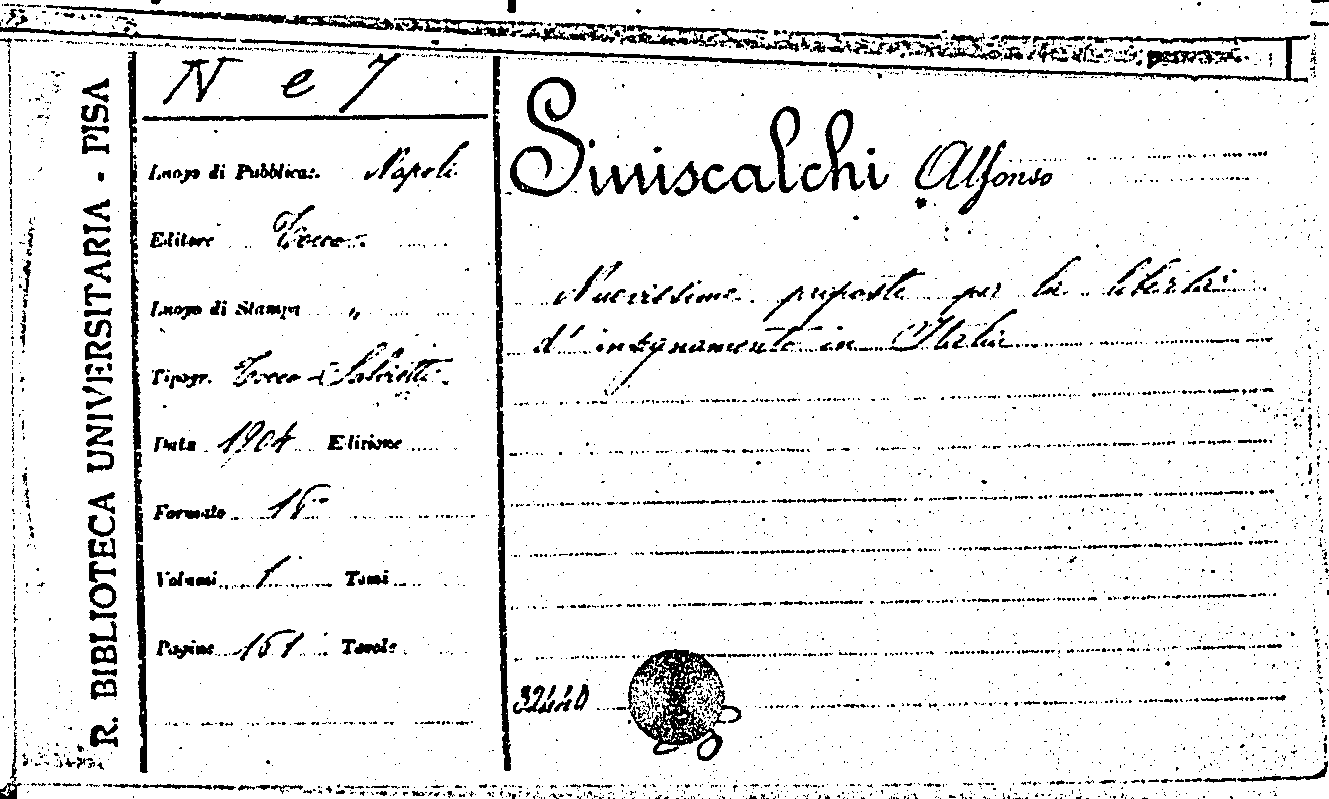 R. BIBLIOTECA UNIVERSITARIA - PISA
N e 7
Luogo di Pubblicaz. Napoli
Editore Tocco
Luogo di Stampa "
Tipogr. Tocco - Salvietti
Data 1904 Edizione
Formato 16°
Volumi 1 Tomi
Pagine 151 Tavole
Siniscalchi Alfonso
Nuovissime proposte per la libertà
d'insegnamento in Italia
32440